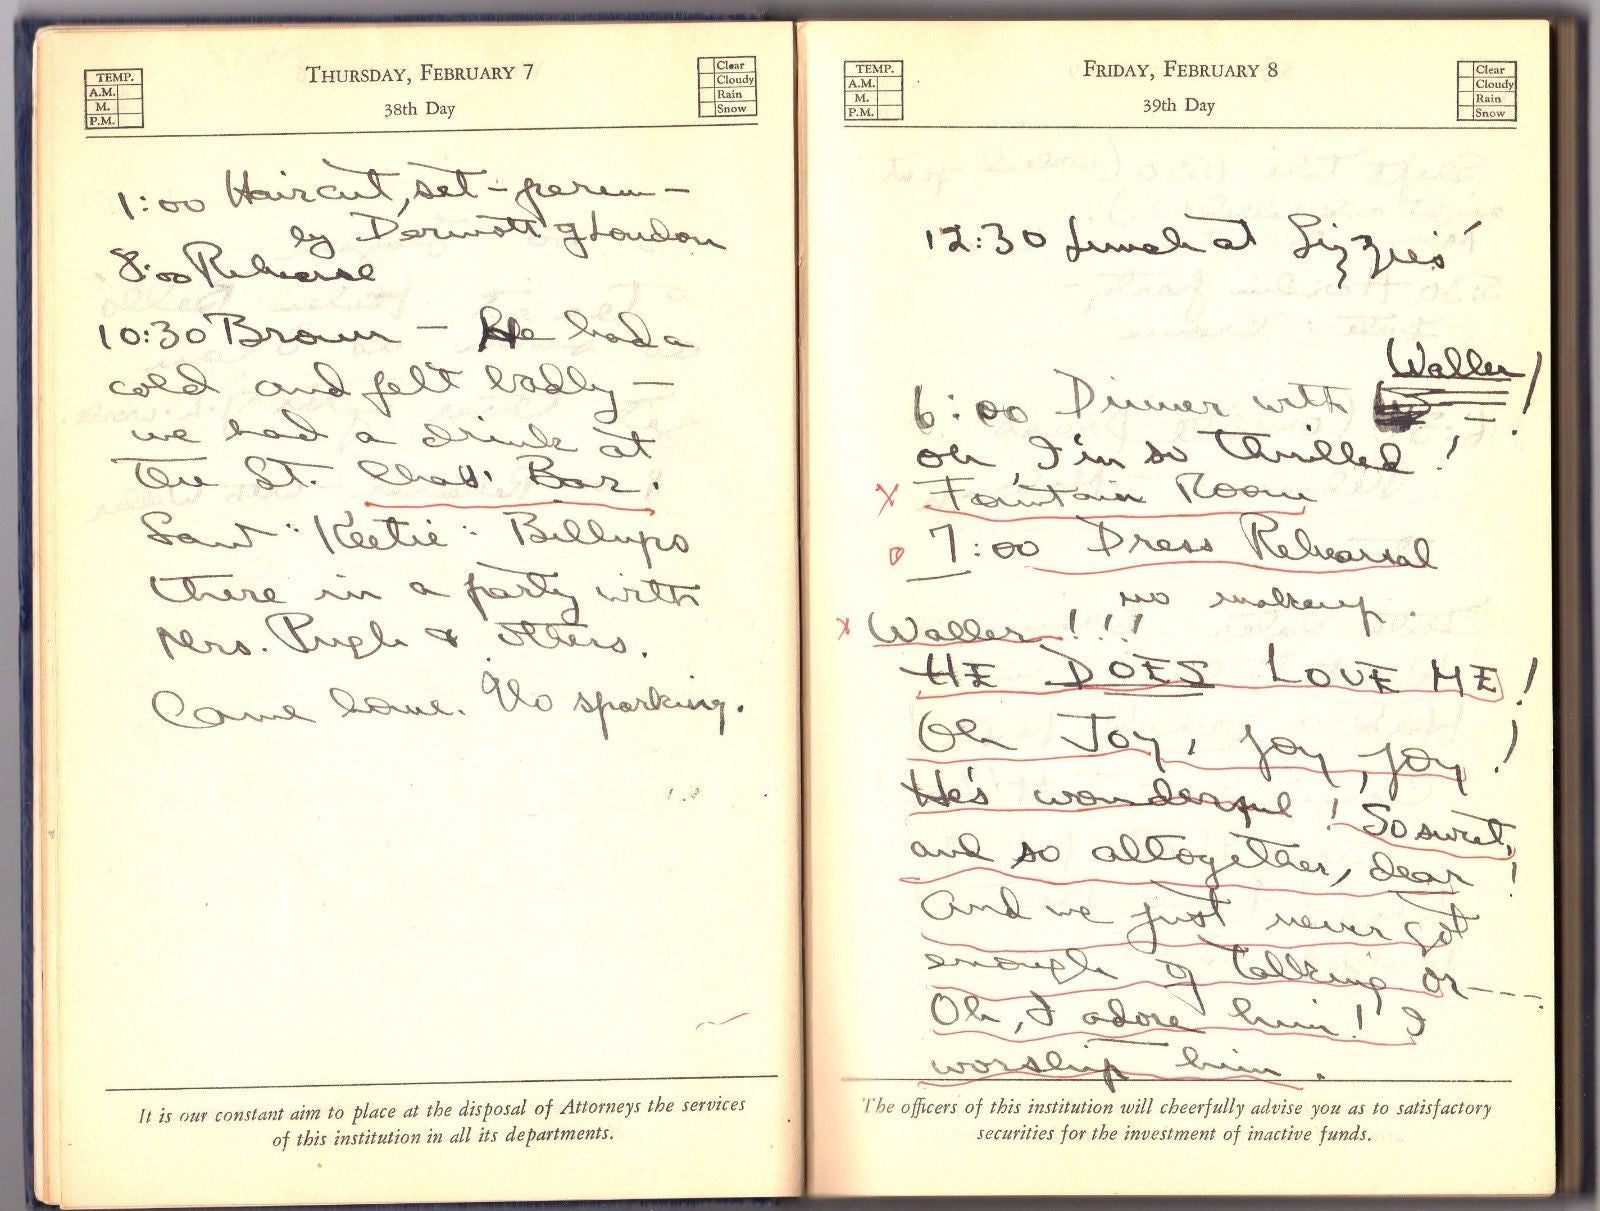 THURSDAY, FEBRUARY 7
38th Day
TEMP.
A.M.
M.
P.M.
Clear
Cloudy
Rain
Snow
1:00 Haircut, set - perm -
by Dermott of London
8:00 Rehearse
10:30 Braun - He had a
cold and felt badly -
we had a drink at
the St. Chas. Bar.
Saw "Keetie" Billups
there in a party with
Mrs. Pugh & others.
Came home. No sparking.
It is our constant aim to place at the disposal of Attorneys the services
of this institution in all its departments.
FRIDAY, FEBRUARY 8
39th Day
TEMP.
A.M.
M.
P.M.
Clear
Cloudy
Rain
Snow
12:30 Lunch at Lizzies'
Waller!
6:00 Dinner with
oh, I'm so thrilled!
x Fountain Room
o 7:00 Dress Rehearsal
no makeup.
x Waller!!!
HE DOES LOVE ME!
Oh Joy, joy, joy!
He's wonderful! So sweet,
and so altogether, dear!
And we just never got
enough of talking or ---.
Oh, I adore him! I
worship him.
The officers of this institution will cheerfully advise you as to satisfactory
securities for the investment of inactive funds.